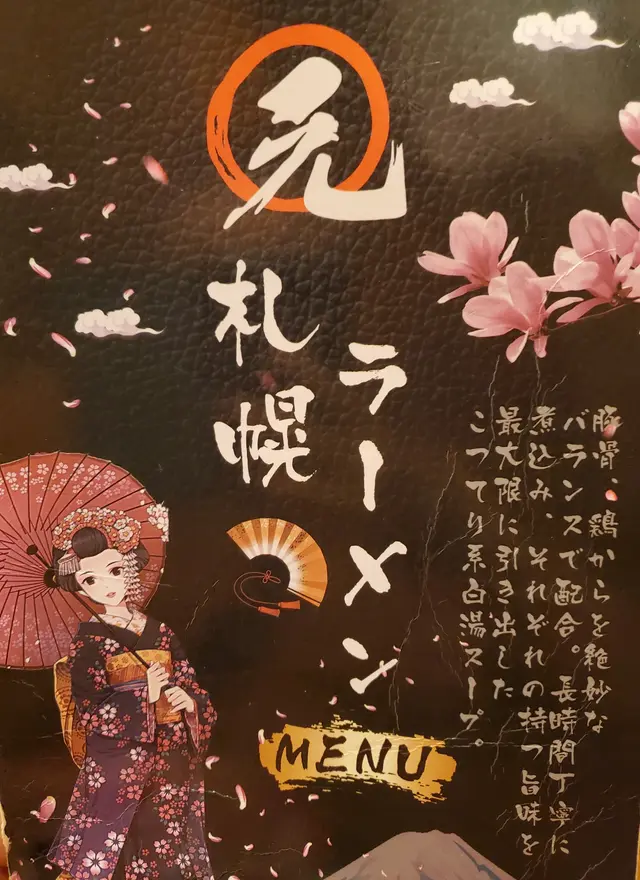 元
札幌
ラーメン
豚骨、鶏からを絶妙な
バランスで配合。長時間丁寧に
煮込み、それぞれの持つ旨味を
最大限に引き出した
こってり系白湯スープ。
MENU